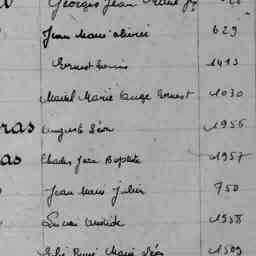 Georges Jean
Jean Marie Olivier 629
Ernest Louis 1413
Marcel Marie Ange Ernest 1030
ras Auguste Léon 1956
as Charles Jean Baptiste 1957
Jean Marie Julien 750
Lucien Aristide 1958
René Marie Léon 1509